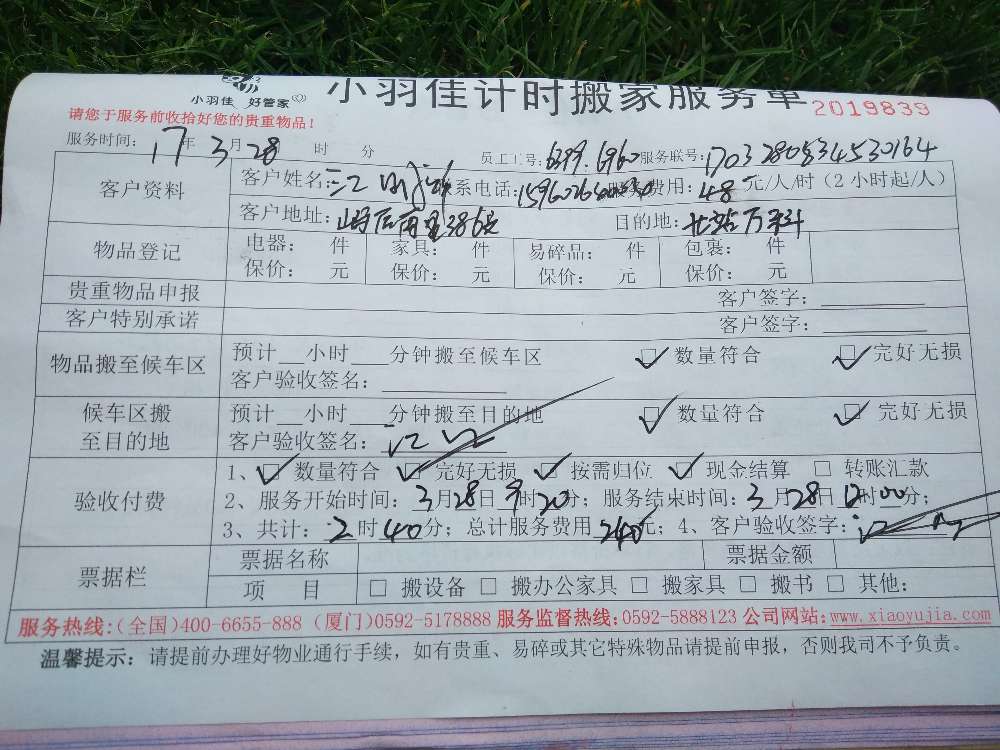 小羽佳 好管家
小羽佳计时搬家服务单 2019839
请您于服务前收拾好您的贵重物品！
服务时间： 17 年 3 月 28 时 分 员工工号： 6399.6960 服务联号： 1703280534530164
客户资料 客户姓名： 江 联系电话： 服务费用： 48 元/人/时（2小时起/人）
客户地址： 后南里386号 目的地： 北站万科
物品登记 电器： 件 家具： 件 易碎品： 件 包裹： 件
保价： 元 保价： 元 保价： 元 保价： 元
贵重物品申报 客户签字：
客户特别承诺 客户签字：
物品搬至候车区 预计 小时 分钟搬至候车区 数量符合 完好无损
客户验收签名：
候车区搬至目的地 预计 小时 分钟搬至目的地 数量符合 完好无损
客户验收签名：
验收付费 1、 数量符合 完好无损 按需归位 现金结算 转账汇款
2、服务开始时间： 3 月 28 日 9 时 20 分；服务结束时间： 3 月 28 日 12 时 00 分；
3、共计： 2 时 40 分；总计服务费用 240 元；4、客户验收签字：
票据栏 票据名称 票据金额
项 目 搬设备 搬办公家具 搬家具 搬书 其他：
服务热线：（全国）400-6655-888（厦门）0592-5178888 服务监督热线：0592-5888123 公司网站：www.xiaoyujia.com
温馨提示：请提前办理好物业通行手续，如有贵重、易碎或其它特殊物品请提前申报，否则我司不予负责。